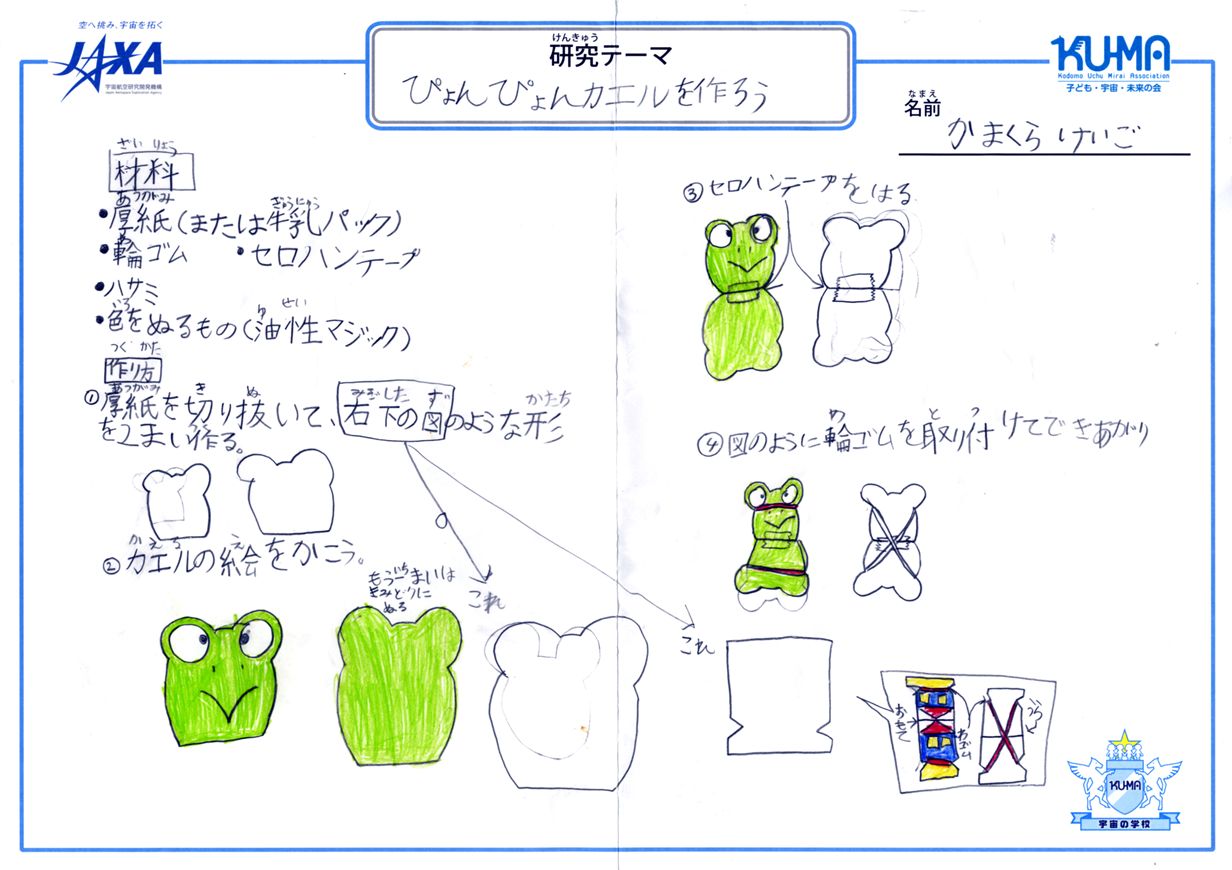 空へ挑み、宇宙を拓く
JAXA
宇宙航空研究開発機構
Japan Aerospace Exploration Agency
けんきゅう
研究テーマ
ぴょんぴょんカエルを作ろう
KU-MA
Kodomo Uchu Mirai Association
子ども・宇宙・未来の会
なまえ
名前
かまくら けいご
ざいりょう
材料
あつがみ ぎゅうにゅう
・厚紙(または牛乳パック)
わ
・輪ゴム ・セロハンテープ
・ハサミ
いろ ゆ せい
・色をぬるもの(油性マジック)
つく かた
作り方
あつがみ き ぬ みぎした ず かたち
①厚紙を切り抜いて、右下の図のような形
つく
を2まい作る。
かえる え
②カエルの絵をかこう。
いち
もう一まいは
きみどりに
ぬる
これ
これ
③セロハンテープをはる
ず わ と つ
④図のように輪ゴムを取り付けてできあがり
おもて
わゴム
うら
KU-MA
宇宙の学校